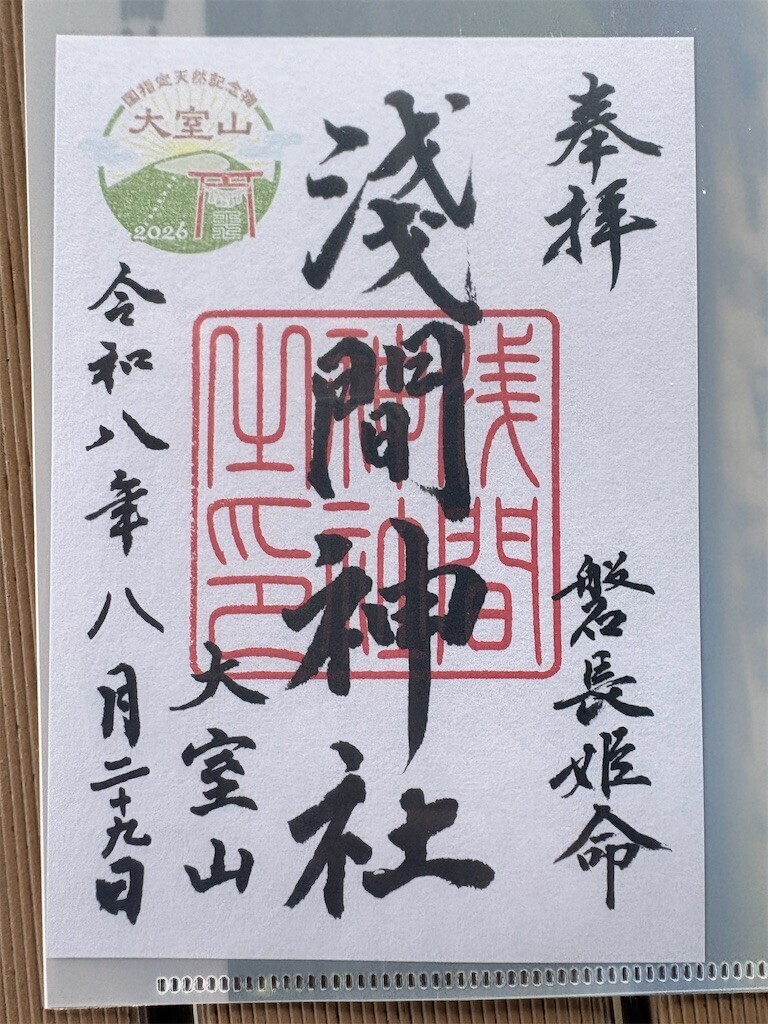 奉拝
磐長姫命
淺間神社
浅間
神社
之印
大室山
令和八年八月二十九日
国指定天然記念物
大室山
2026